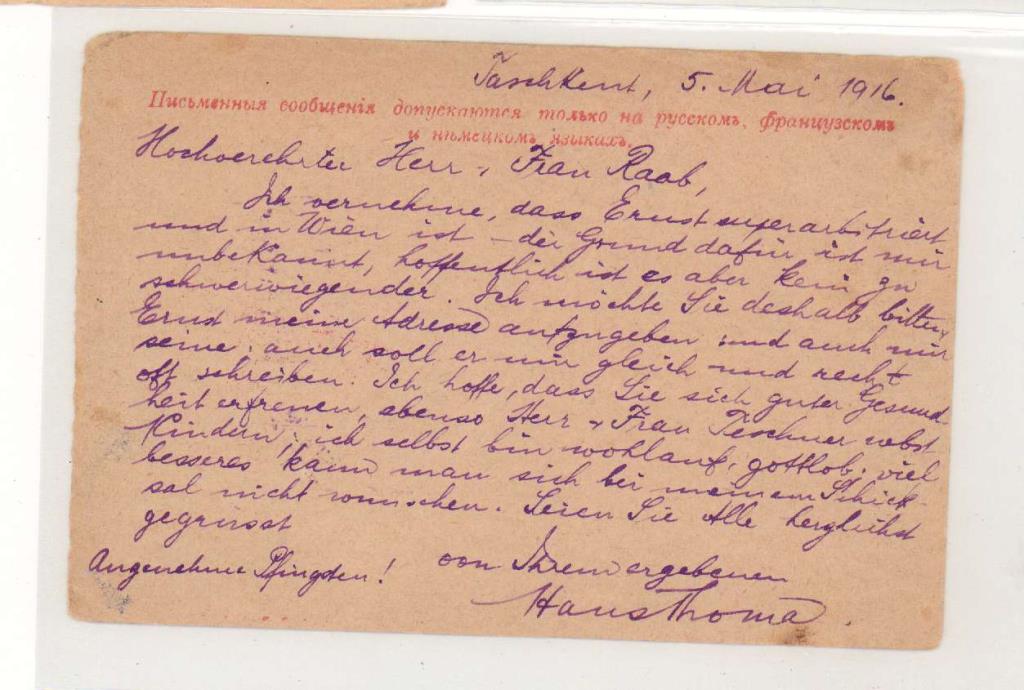 Taschkent, 5. Mai 1916.
Письменныя сообщенія допускаются только на русскомъ, французскомъ
и нѣмецкомъ языкахъ.
Hochverehrter Herr & Frau Raab,
Ich vernehme, dass Ernst superarbitriert
und in Wien ist – der Grund dafür ist mir
unbekannt, hoffentlich ist es aber kein zu
schwerwiegender. Ich möchte Sie deshalb bitten,
Ernst meine Adresse aufzugeben und auch mir
seine; auch soll er mir gleich und recht
oft schreiben. Ich hoffe, dass Sie sich guter Gesund-
heit erfreuen, ebenso Herr & Frau Teschner nebst
Kindern; ich selbst bin wohlauf, gottlob; viel
besseres kann man sich bei meinem Schick-
sal nicht wünschen. Seien Sie Alle herzlichst
gegrüsst
von Ihrem ergebenen
Angenehme Pfingsten!
Hans Thoma.